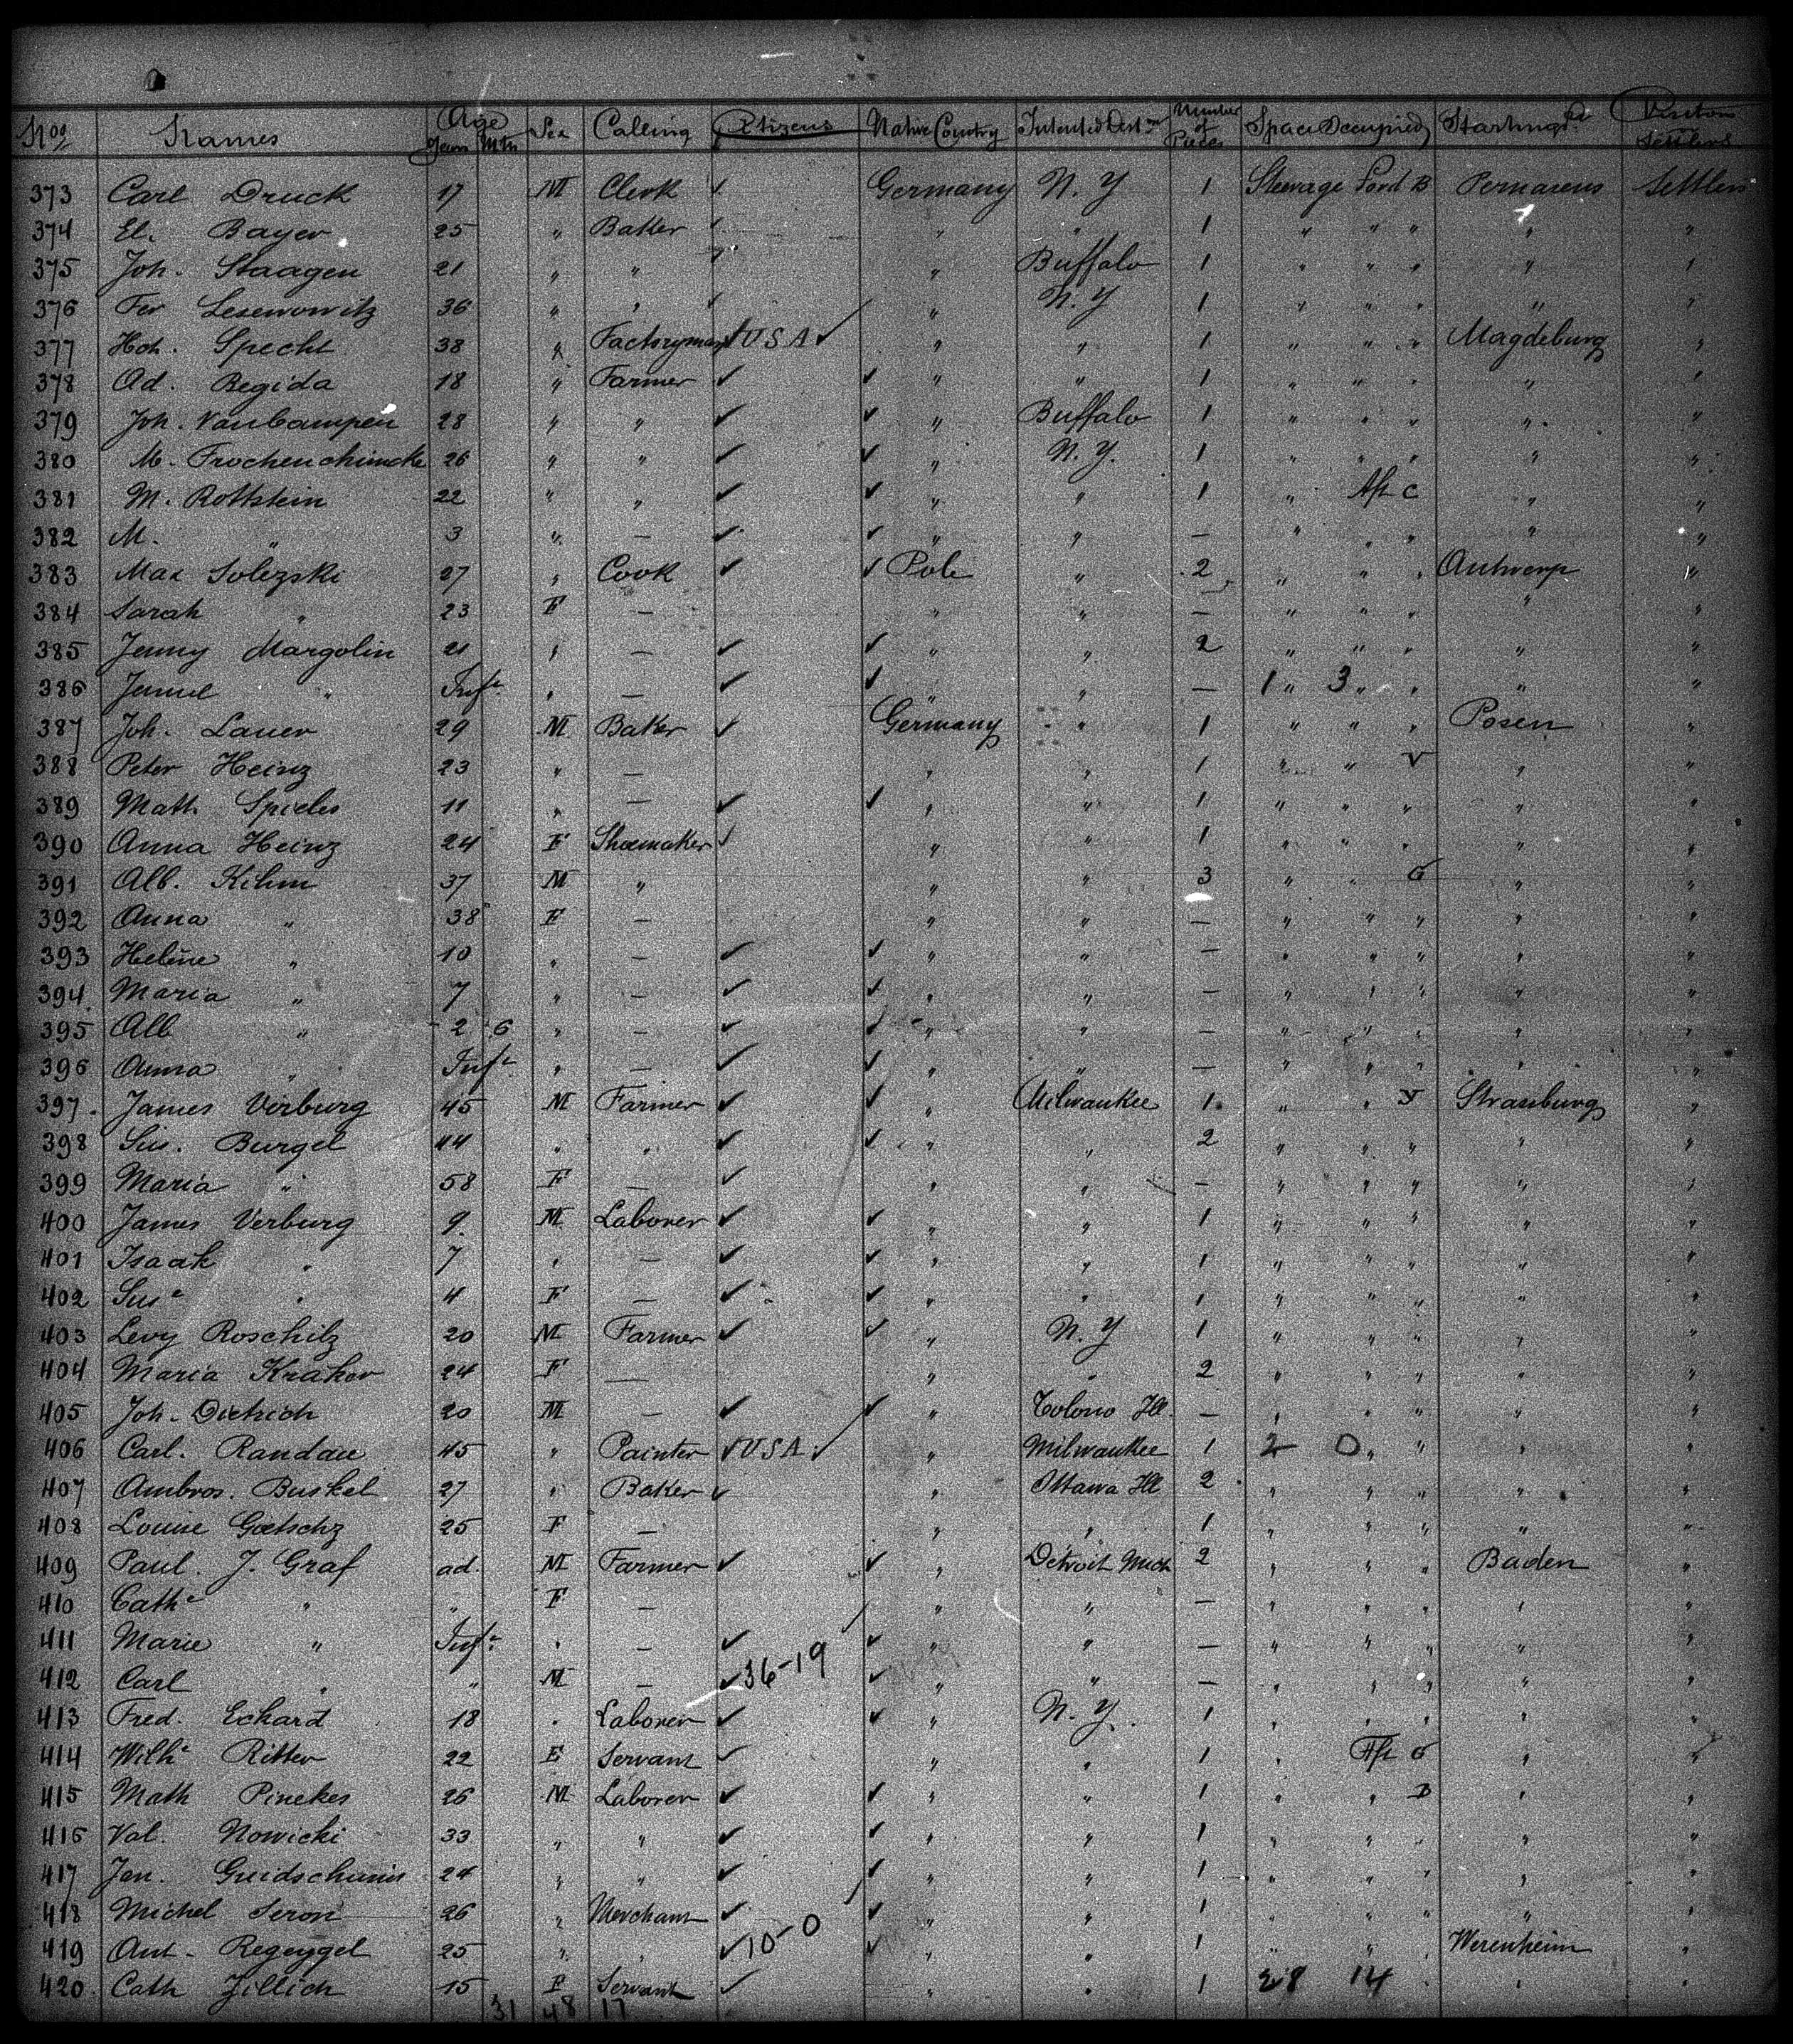 Nos Names Age Years Mth Sex Calling Citizens Native Country Intented Destn Number of Pieces Space Occupied Starting Pl Settlers
373 Carl Druck 17 M Clerk ✓ Germany N. Y 1 Steerage Ford B Pernasens Settlers
374 El. Bayer 25 " Baker ✓ " " 1 " " " " "
375 Joh. Staagen 21 " " " Buffalo 1 " " " " "
376 Fer Lesenowitz 36 " " ✓ " N. Y 1 " " " " "
377 Hch. Specht 38 " Factoryman ✓ U S A ✓ " " 1 " " " Magdeburg "
378 Ad. Regida 18 " Farmer ✓ ✓ " " 1 " " " " "
379 Joh. VanCampen 28 " " ✓ ✓ " Buffalo 1 " " " " "
380 M. 26 " " ✓ ✓ " N. Y. 1 " " " " "
381 M. Rottstein 22 " " ✓ ✓ " " 1 " Aft C " "
382 M. " 3 " — ✓ ✓ " " — " " " " "
383 Max Solezski 27 " Cook ✓ ✓ Pole " 2 " " " Antwerp "
384 Sarah " 23 F — " " — " " " " "
385 Jenny Margolin 21 " — ✓ ✓ " " 2 " " " " "
386 " Inft " — ✓ ✓ " " — 1 " 3 " " " "
387 Joh. Lauer 29 M Baker ✓ Germany " 1 " " " Posen "
388 Peter Heinz 23 " — " " 1 " " V " "
389 Math. Spieles 11 " — ✓ ✓ " " 1 " " " " "
390 Anna Heinz 24 F Shoemaker ✓ " " 1 " " " " "
391 Alb. Kihm 37 M " " " 3 " " G " "
392 Anna " 38 F — " " — " " " " "
393 Helene " 10 " — ✓ ✓ " " — " " " " "
394 Maria " 7 " — ✓ ✓ " " — " " " " "
395 Alb " 2 6 " — ✓ ✓ " " — " " " " "
396 Anna " Inft " — ✓ ✓ " " — " " " " "
397 James Verburg 45 M Farmer ✓ ✓ " Milwaukee 1 " " V Strassburg "
398 Sus. Burgel 44 " " ✓ ✓ " " 2 " " " " "
399 Maria " 58 F — ✓ " " — " " " " "
400 James Verburg 9 M Laborer ✓ ✓ " " 1 " " " " "
401 Isaak " 7 " — ✓ ✓ " " 1 " " " " "
402 Sus " 4 F — ✓ ✓ " " 1 " " " " "
403 Levy Roschilz 20 M Farmer ✓ ✓ " N. Y 1 " " " " "
404 Maria Kraker 24 F — " " 2 " " " " "
405 Joh. Dietrich 20 M — ✓ ✓ " Tolono Ill. — " " " " "
406 Carl. Randau 45 " Painter ✓ U S A ✓ " Milwaukee 1 2 0 " " " "
407 Ambros. Buskel 27 " Baker ✓ " Ottawa Ill 2 " " " " "
408 Louise Goetschz 25 F — " " 1 " " " " "
409 Paul. J. Graf ad. M Farmer ✓ ✓ " Detroit Mich 2 " " " Baden "
410 Cathe " " F — " " — " " " " "
411 Marie " Inft " — ✓ ✓ " " — " " " " "
412 Carl " " M — ✓ 36-19 ✓ " " — " " " " "
413 Fred. Eckard 18 " Laborer ✓ ✓ " N. Y. 1 " " " " "
414 Wilhe Ritter 22 F Servant ✓ " " 1 " Aft G " "
415 Math Pinekes 26 M Laborer ✓ ✓ " " 1 " " D " "
416 Val. Nowicki 33 " " ✓ ✓ " " 1 " " " " "
417 Jan. 24 " " ✓ ✓ " " 1 " " " " "
418 Michel Seron 26 " Merchant ✓ ✓ " " 1 " " " " "
419 Ant. Regeygel 25 " " ✓ 10-0 ✓ " " 1 " " " Werenheim "
420 Cath Zillich 15 F Servant ✓ " " 1 28 14 " "
31 48 17